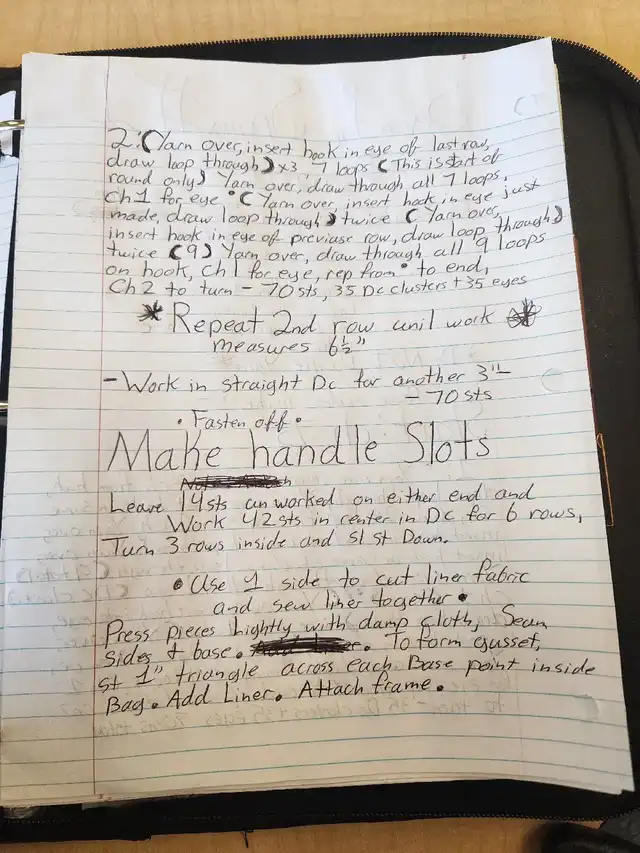 2: (Yarn over, insert hook in eye of last row,
draw loop through) x3, 7 loops (This is start of
round only) Yarn over, draw though all 7 loops,
Ch 1 for eye • (Yarn over, insert hook in eye just
made, draw loop through) twice (Yarn over,
insert hook in eye of previase row, draw loop through)
twice (9) Yarn over, draw through all 9 loops
on hook, Ch 1 for eye, rep from • to end,
Ch 2 to turn - 70 sts, 35 Dc clusters + 35 eyes
* Repeat 2nd row unil work *
measures 6 1/2"
- Work in straight Dc for another 3"
- 70 sts
• Fasten off •
Make handle Slots
Leave 14 sts unworked on either end and
Work 42 sts in center in DC for 6 rows,
Turn 3 rows inside and sl st Down.
• Use 1 side to cut liner fabric
and sew liner together •
Press pieces lightly with damp cloth, Seam
sides + base. To form gusset,
st 1" triangle across each Base point inside
Bag. Add Liner. Attach frame.